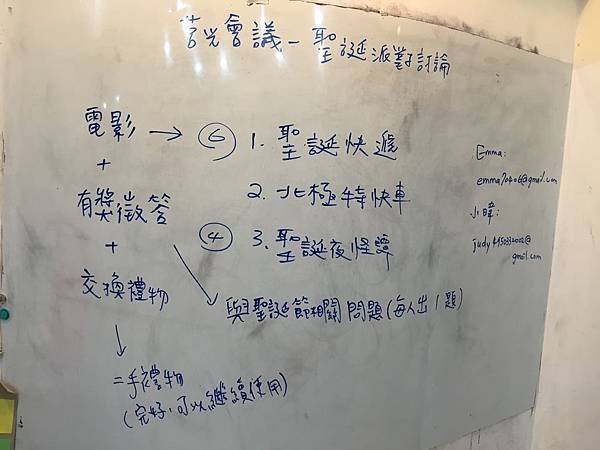 莒光會議－聖誕派對討論
電影 → ⑥ 1. 聖誕快遞
+
2. 北極特快車
有獎徵答
④ 3. 聖誕夜怪譚
+
交換禮物
與聖誕節相關問題(每人出1題)
二手禮物
(完好,可以繼續使用)
Emma:
emma70406@gmail.com
小暐:
gmail.com